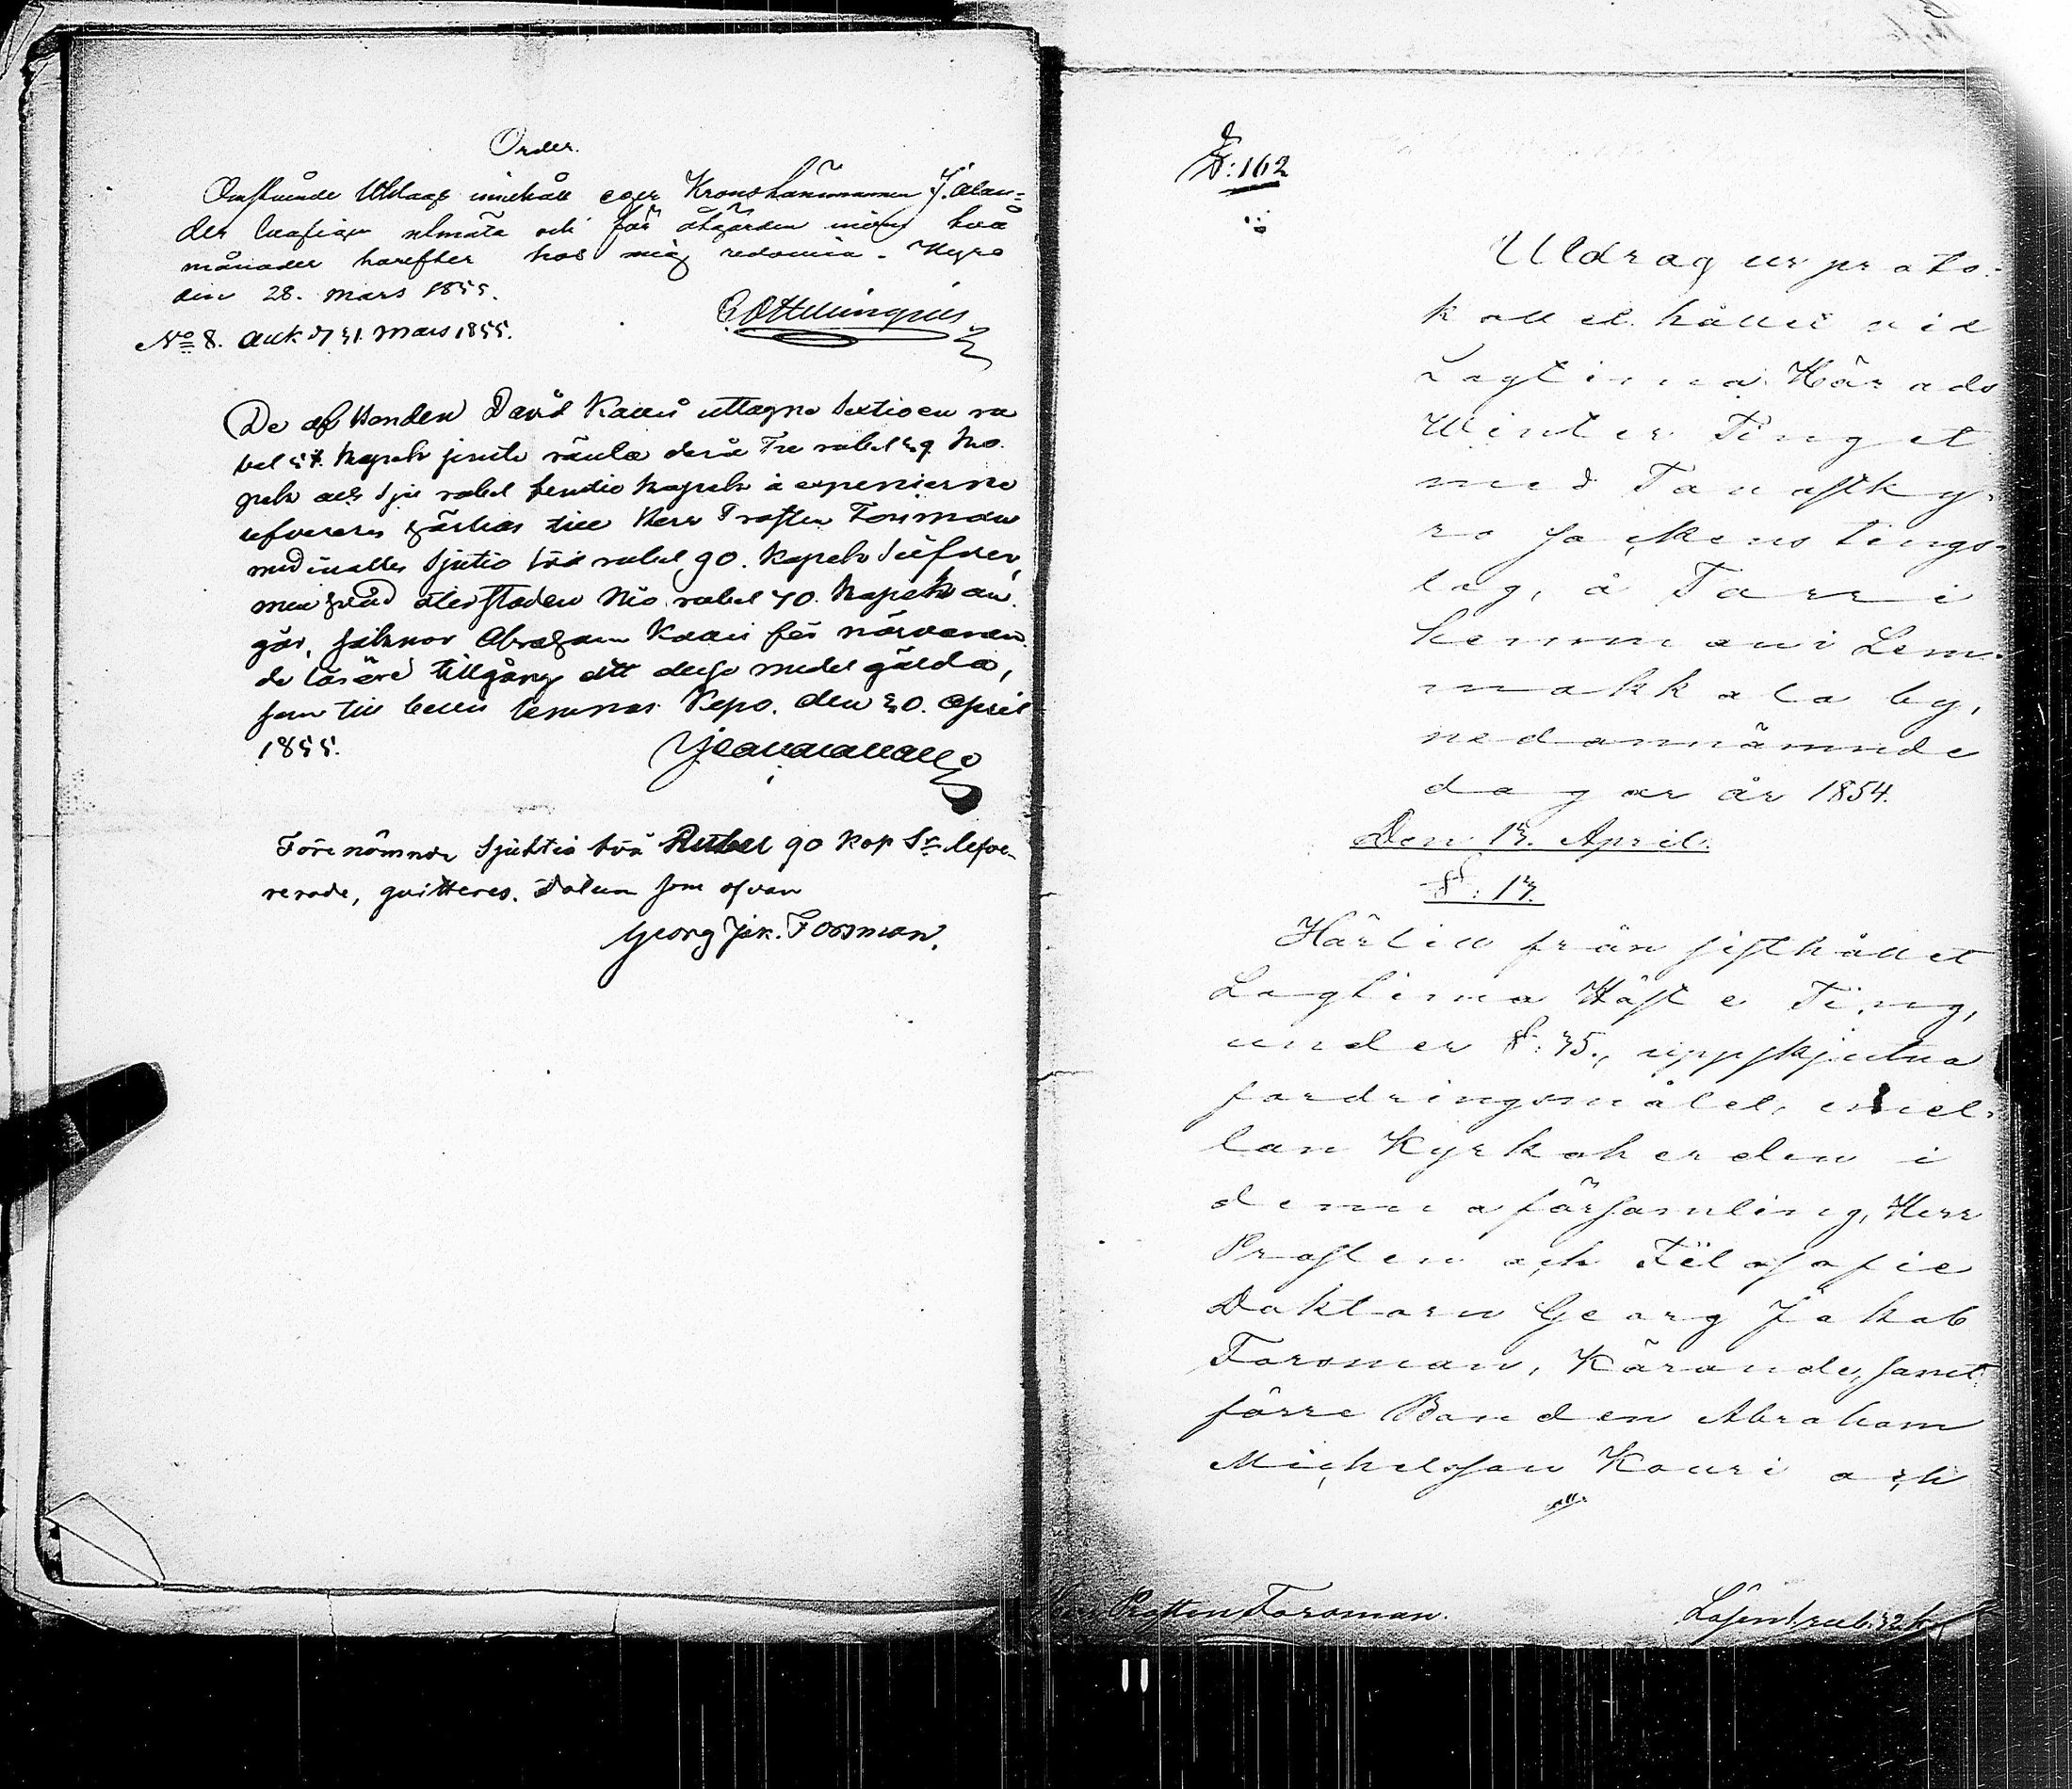 Order.
Omstående Utslags innehåll eger Kronolänsmannen J. Alan-
der lagligen utmäta och för åtgärden inom två
månader härefter hos mig redovisa. Kyro
den 28. Mars 1855.
No 8. Ank. d 31. Mars 1855.
De af Bonden David Kauri uttagne Sextioen ru
bel 57. kopek jemte ränta derå Tre rubel 29. Ko-
pek och Sju rubel femtio kopek i expenserne
lefvereras härhos till Herr Prosten Forsman
med inalles Sjutio två rubel, 90. kopek Silfver,
men hvad återstoden Nio rubel 40. kopek an-
går, saknar Abraham Kauri för närvaran-
de lösöre tillgång att dessa medel gälda,
som till bevis lemnas. Kyro, den 30. April
1855.
Förenämnde Sjuttio två Rubel 90 Kop Sr lefve-
rerade, qvitteres. Datum som ofvan
Georg Jak. Forsman.
§: 162
Utdrag ur proto-
kollet hållet vid
Lagtima Härads
Winter Tinget
med Tavastky-
ro Sockens tings-
lag, å Tarri
hemman i Lem-
makkala by,
nedannämnde
dagar år 1854.
Den 13. April.
§: 13.
Härtill från sisthållet
Lagtima Höste Ting,
under §: 35., uppskjutna
fordringsmålet, emel-
lan Kyrkoherden i
denna församling, Herr
Prosten och Filosofie
Doktorn Georg Jakob
Forsman, Kärande, samt
förre Bonden Abraham
Michelsson Kauri och
Herr Prosten Forsman.
Lösen 1 rub. 32 k
11